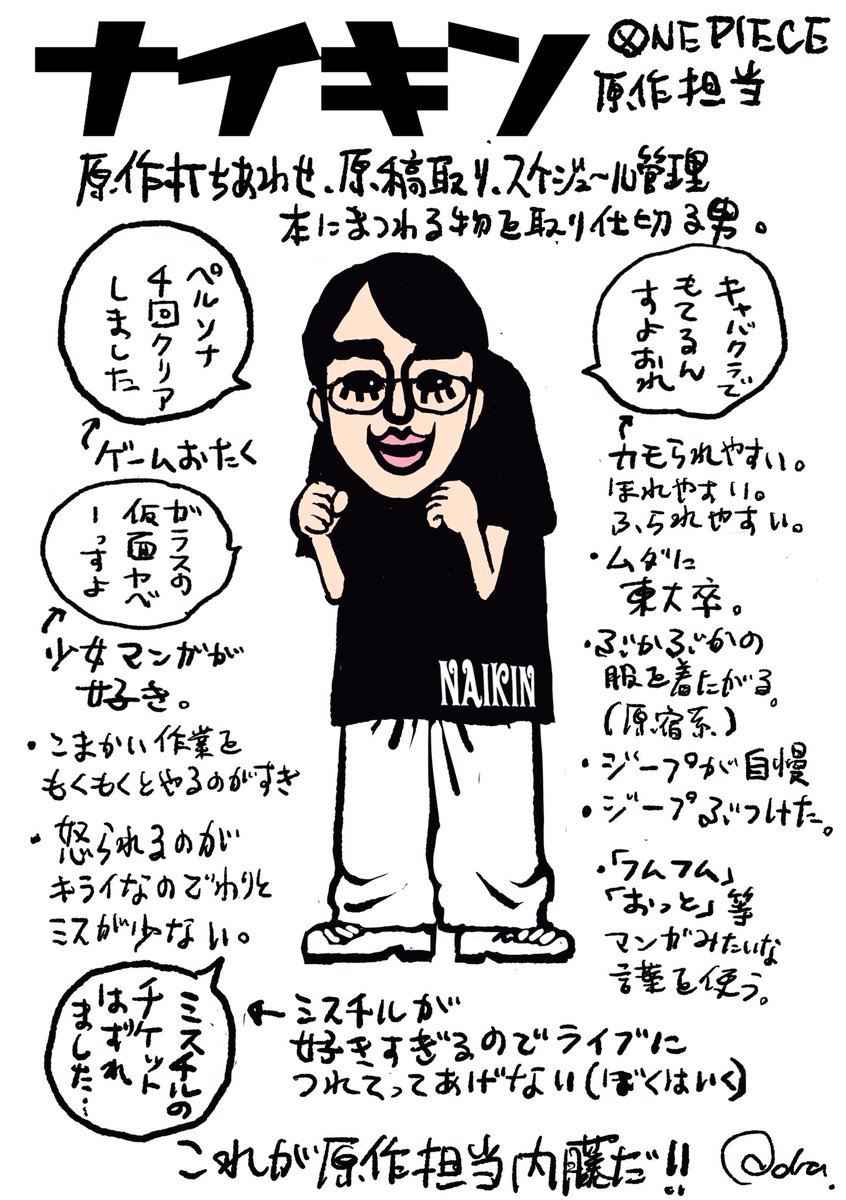 ナイキン
ONE PIECE
原作担当
原作打ちあわせ、原稿取り、スケジュール管理
本にまつわる物を取り仕切る男。
ペルソナ
4回クリア
しました
ゲームおたく
キャバクラで
もてるん
すよおれ
カモられやすい。
ほれやすい。
ふられやすい。
ガラスの
仮面ヤベ
ーっすよ
少女マンガが
好き。
・こまかい作業を
もくもくとやるのがすき
・怒られるのが
キライなのでわりと
ミスが少ない。
NAIKIN
・ムダに
東大卒。
・ぶかぶかの
服を着たがる。
(原宿系)
・ジープが自慢
・ジープぶつけた。
・「フムフム」
「おっと」等
マンガみたいな
言葉を使う。
ミスチルの
チケット
はずれ
ました…
ミスチルが
好きすぎるのでライブに
つれてってあげない(ぼくはいく)
これが原作担当内藤だ!!